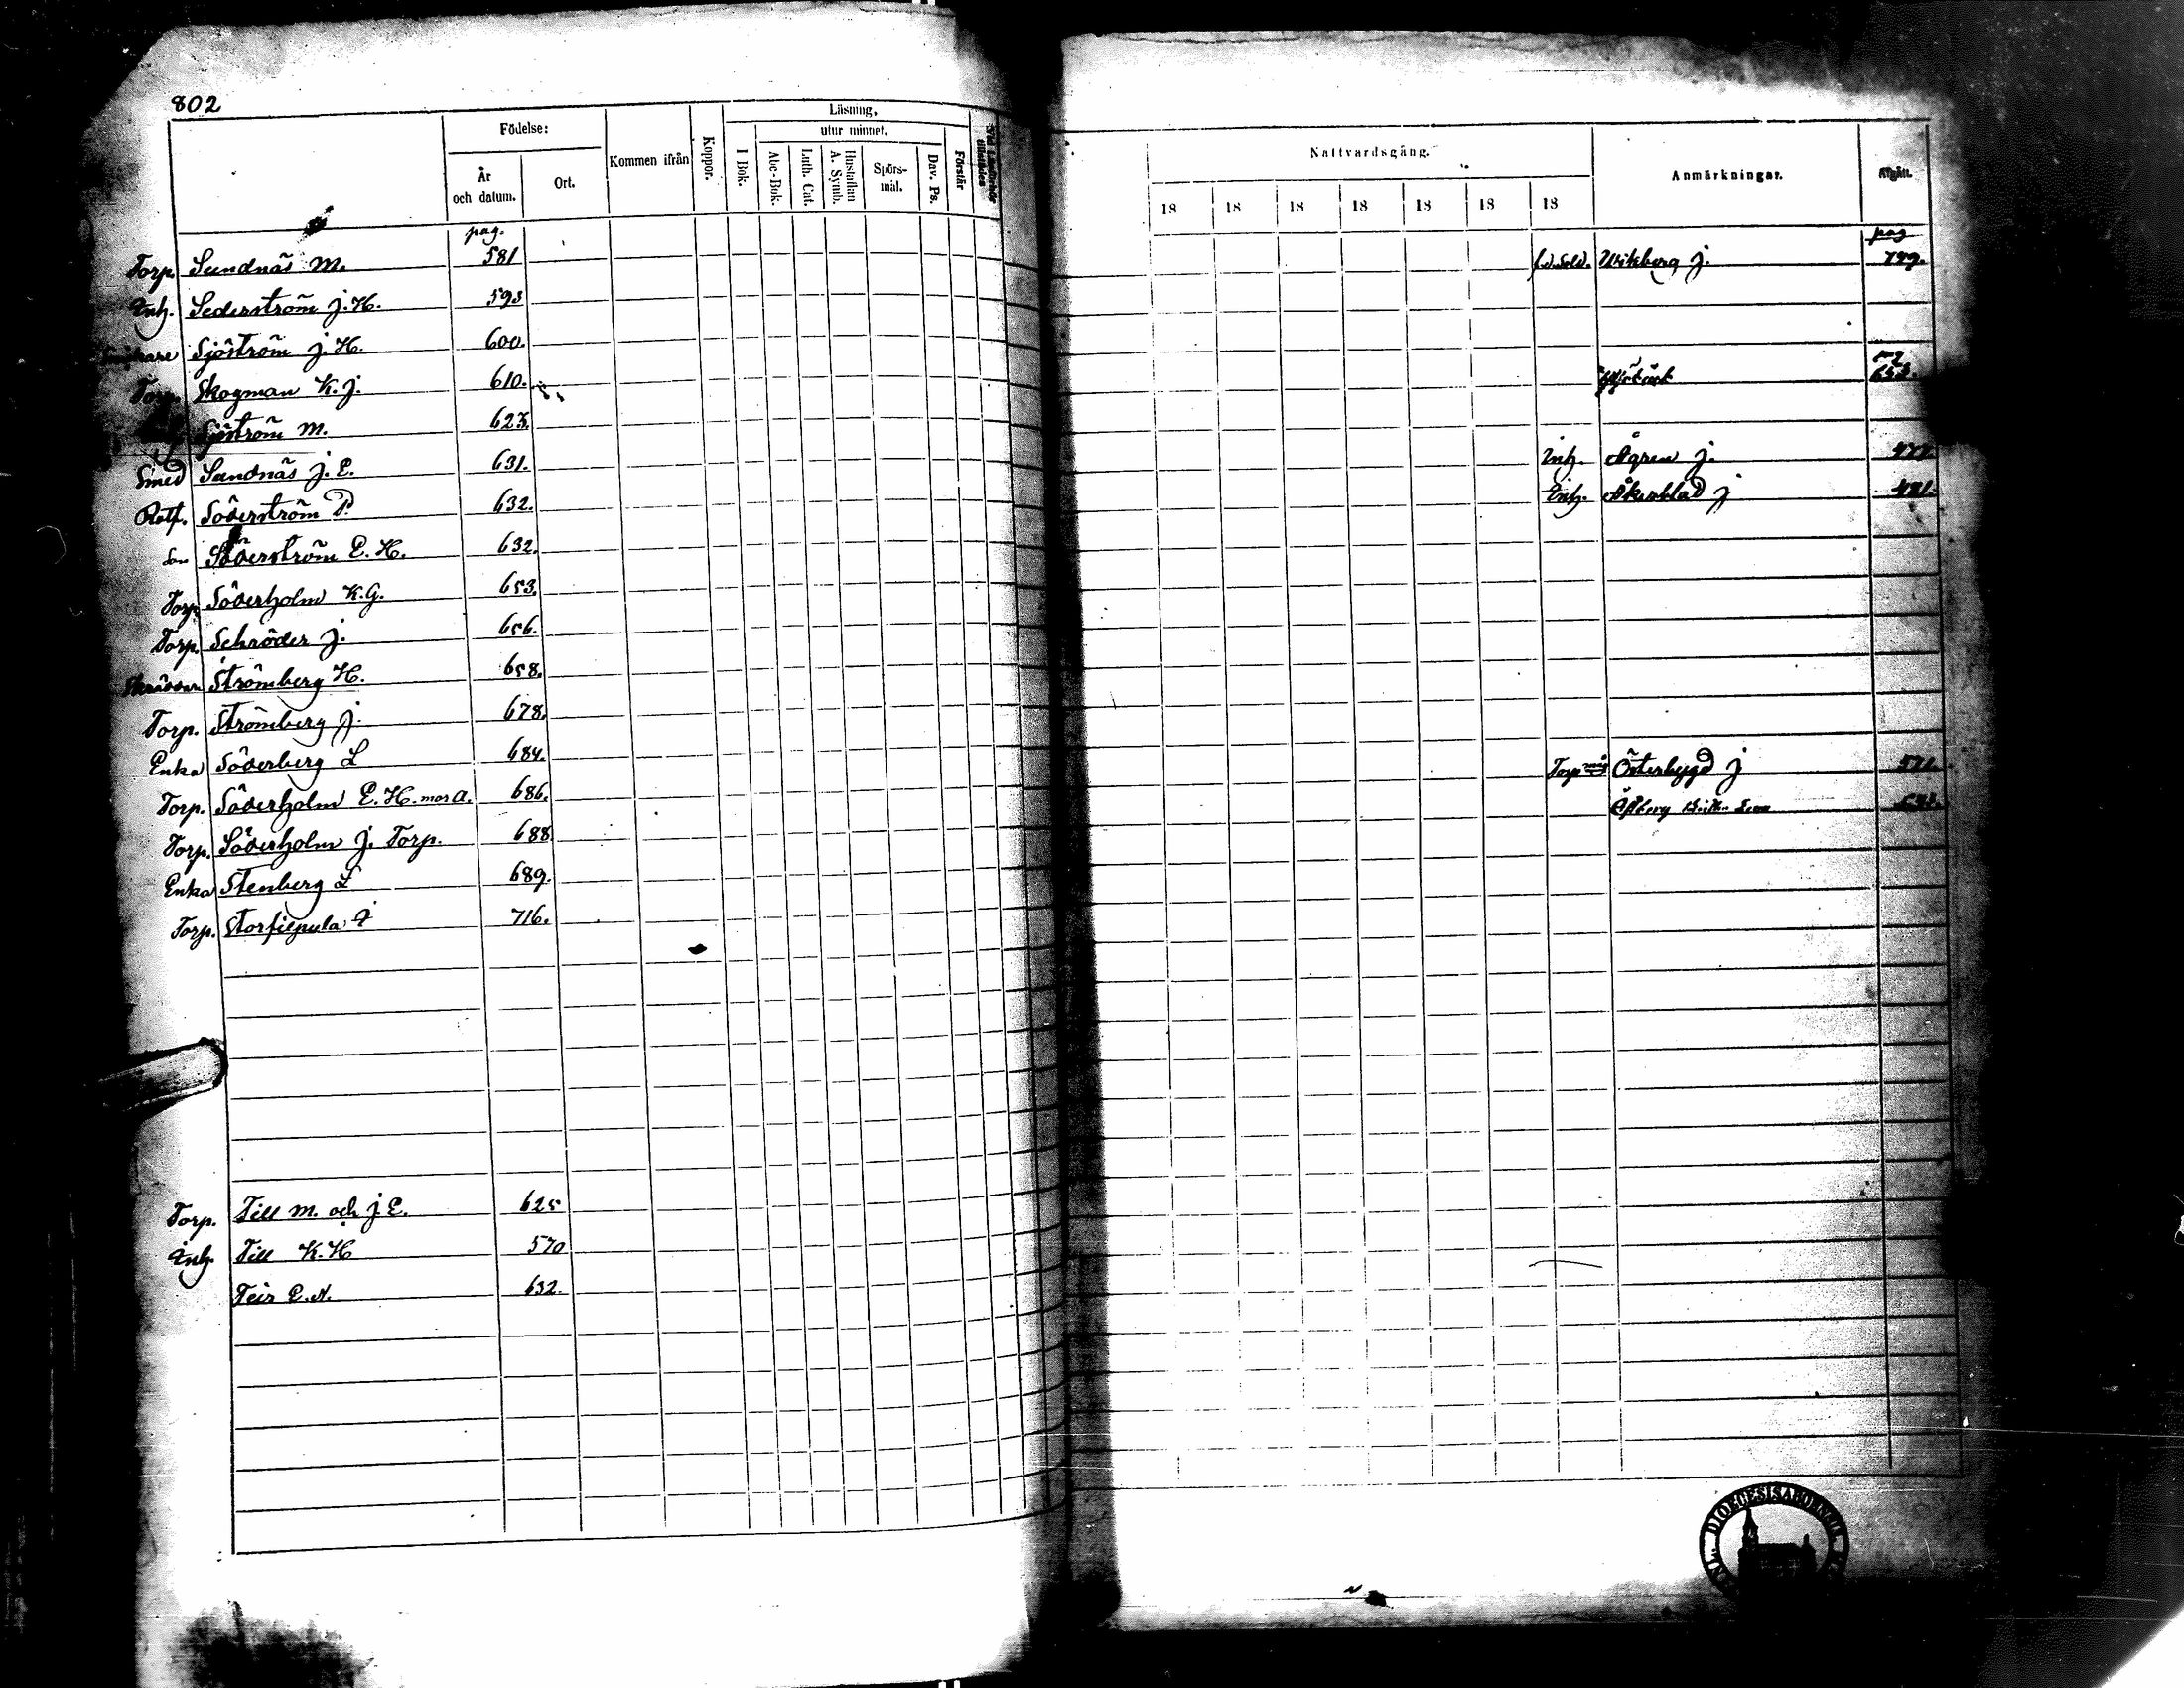 802
Födelse:
År och datum.
Ort.
Kommen ifrån
Koppor.
Läsning,
utur minnet.
I Bok.
Abc-Bok.
Luth. Cat.
Hustaflan A. Symb.
Spörs-mål.
Dav. Ps.
Förstår
pag.
Torp. Sundnäs M. 581
Inh. Sederström J. H. 593
Sjöström J. H. 600.
Torp. Skogman K. J. 610.
Sjöström M. 623.
Smed Sundnäs J. E. 631.
Rotf. Söderström P. 632.
Son Söderström E. H. 632.
Torp. Söderholm K. G. 653.
Torp. Schröder J. 656.
Skräddare Strömberg H. 658.
Torp. Strömberg J. 678.
Enka Söderberg L 684.
Torp. Söderholm E. H. mor A. 686.
Torp. Söderholm J. Torp. 688.
Enka Stenberg L 689.
Torp. 716.
Torp. Till M. och J E. 625
Inh. Till K. H 570
Teir E. A. 632.
Nattvardsgång.
Anmärkningar.
Afgått.
18 18 18 18 18 18 18
pag
f.d. Sold. Wikberg J. 799.
Inh. Ågren J. 477.
Inh. Åkerblad J 481.
Torp Österbygd J 571.